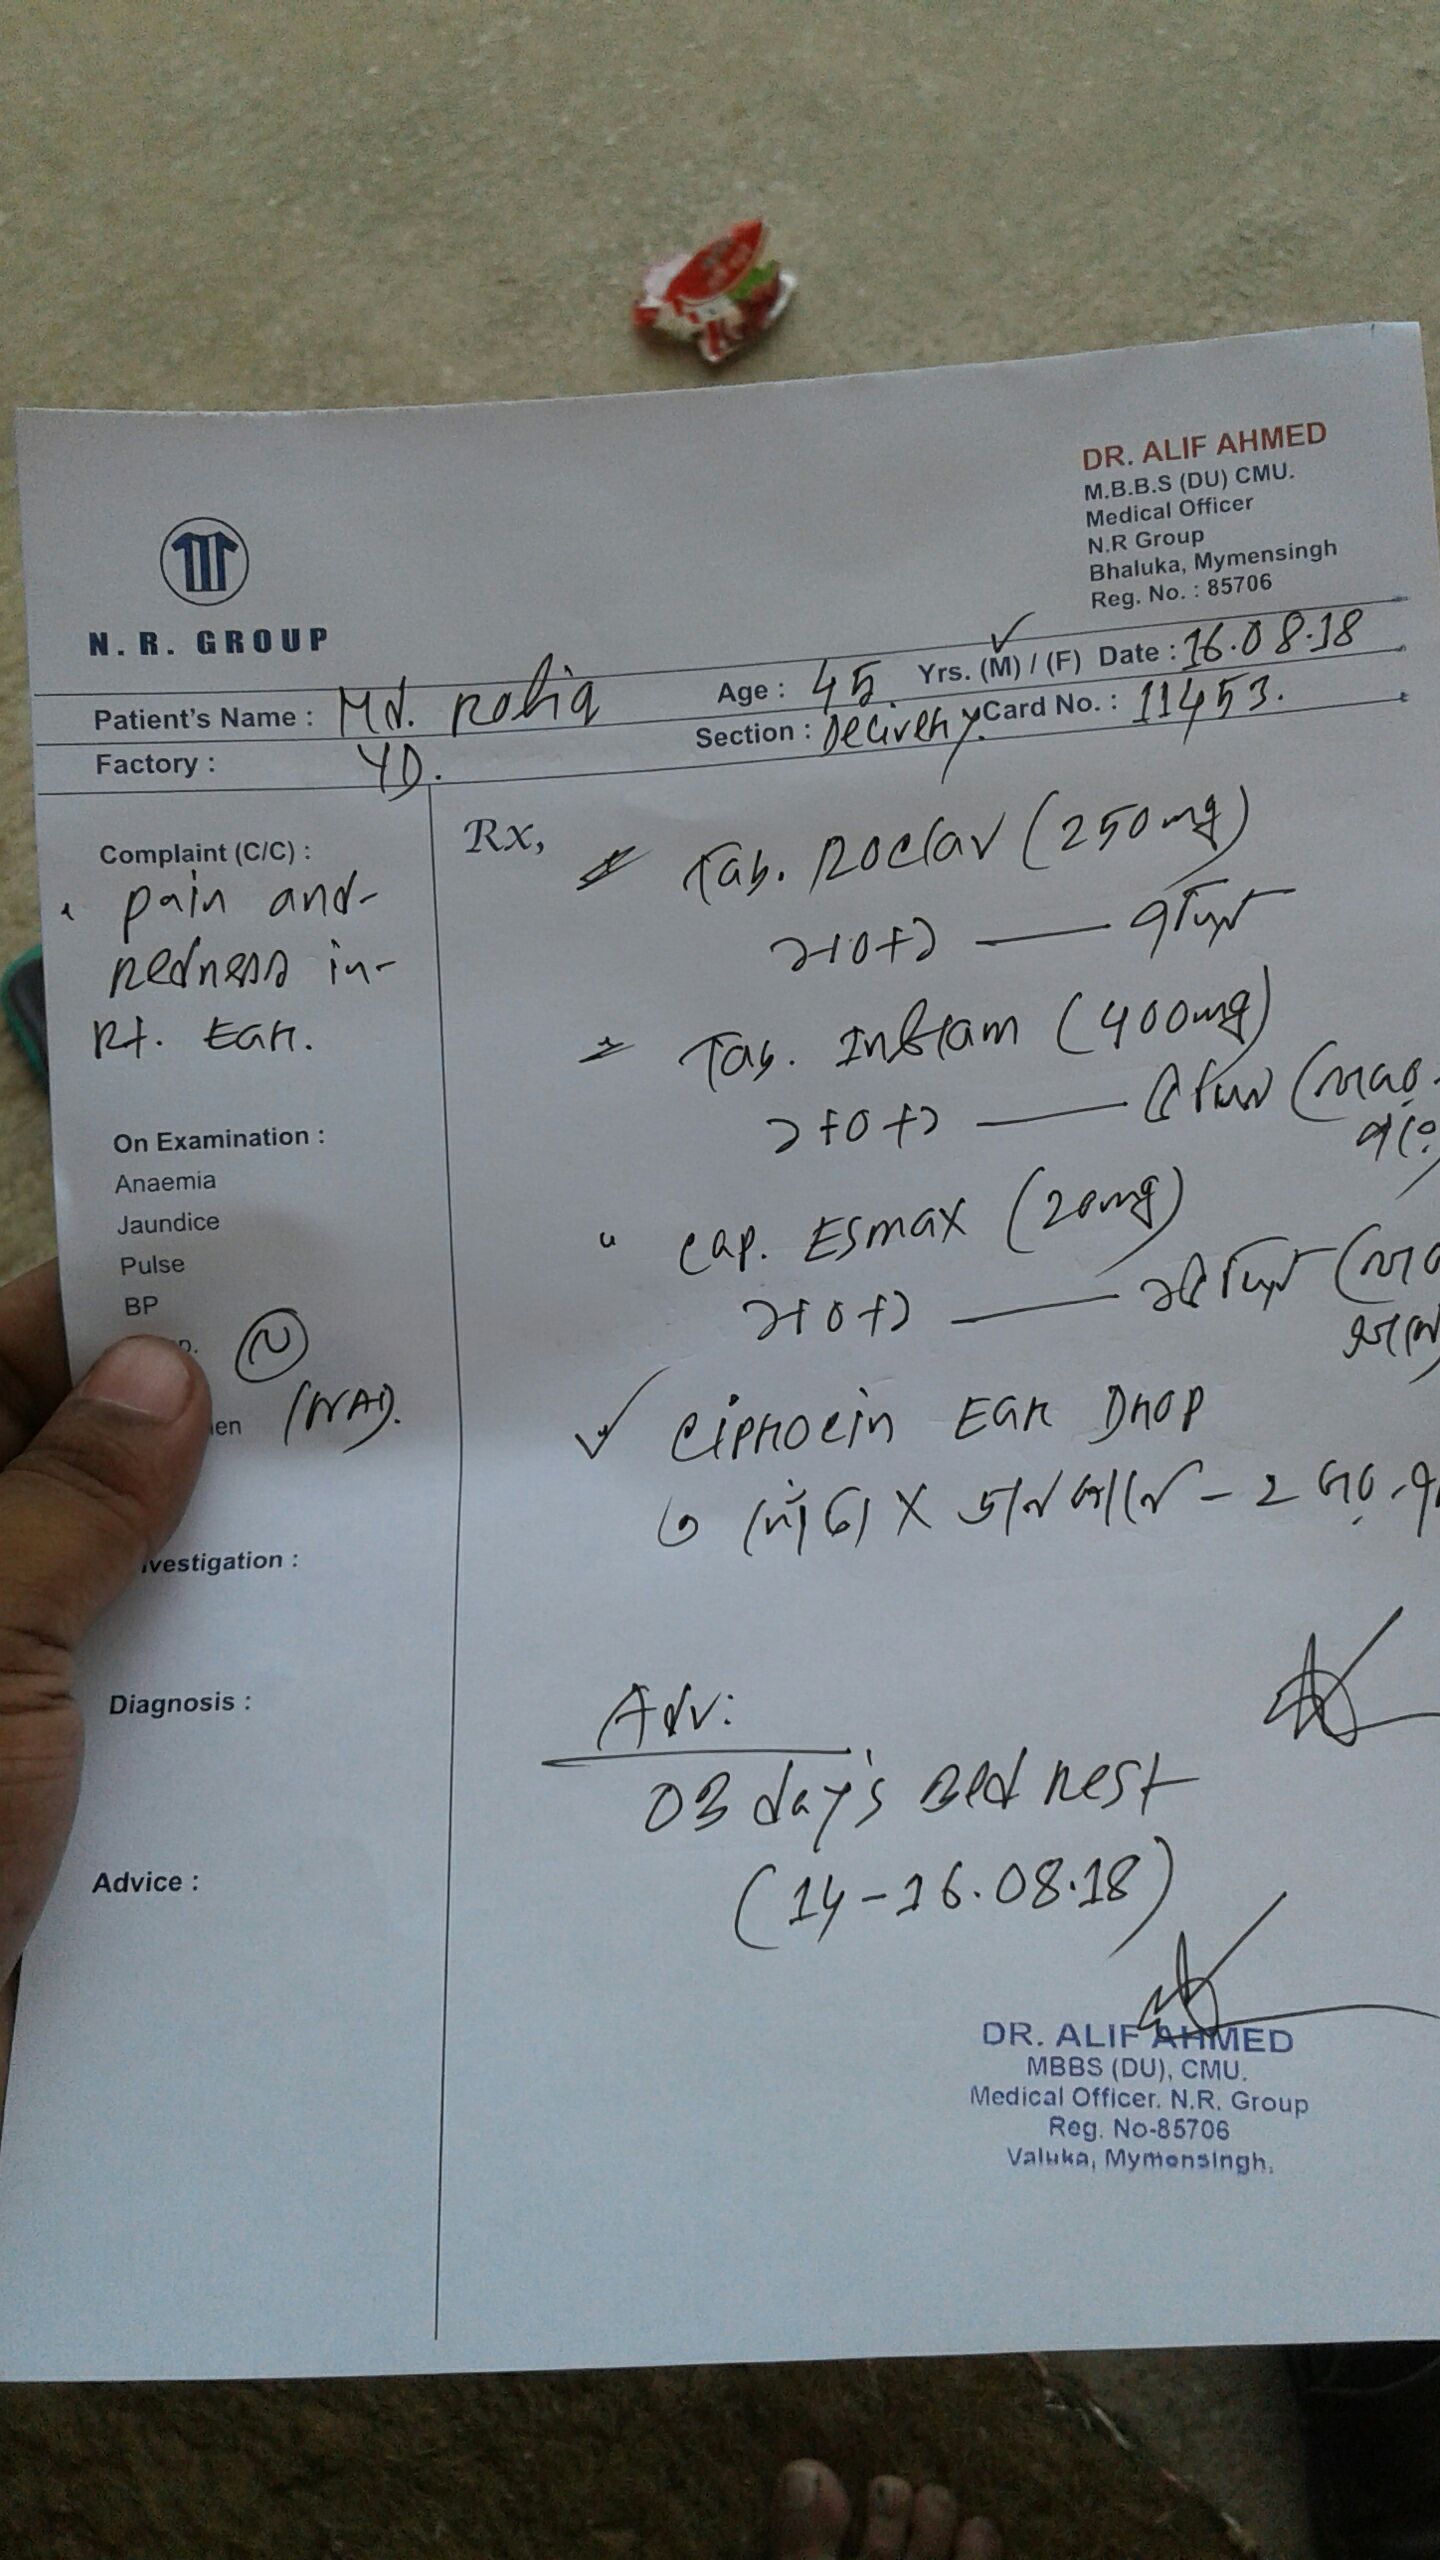 DR. ALIF AHMED
M.B.B.S (DU) CMU.
Medical Officer
N.R Group
Bhaluka, Mymensingh
Reg. No. : 85706
N. R. GROUP
Patient's Name : Md. Rofiq Age : 45 Yrs. (M) / (F) Date : 16.08.18
Factory : YD. Section : Delivery. Card No. : 11453.
Complaint (C/C) :
pain and
redness in
Rt. Ear.
On Examination :
Anaemia
Jaundice
Pulse
BP
N
(NAD).
Investigation :
Diagnosis :
Advice :
Rx,
Tab. Roclav (250mg)
১+০+১ — ৭দিন
Tab. Inflam (400mg)
১+০+১ — ৫দিন
Cap. Esmax (20mg)
১+০+১ — ১৫দিন
Ciprocin Ear Drop
৩ ফোঁটা X ডান কানে -
Adv:
03 day's Bed rest
(14-16.08.18)
DR. ALIF AHMED
MBBS (DU), CMU.
Medical Officer. N.R. Group
Reg. No-85706
Valuka, Mymensingh,